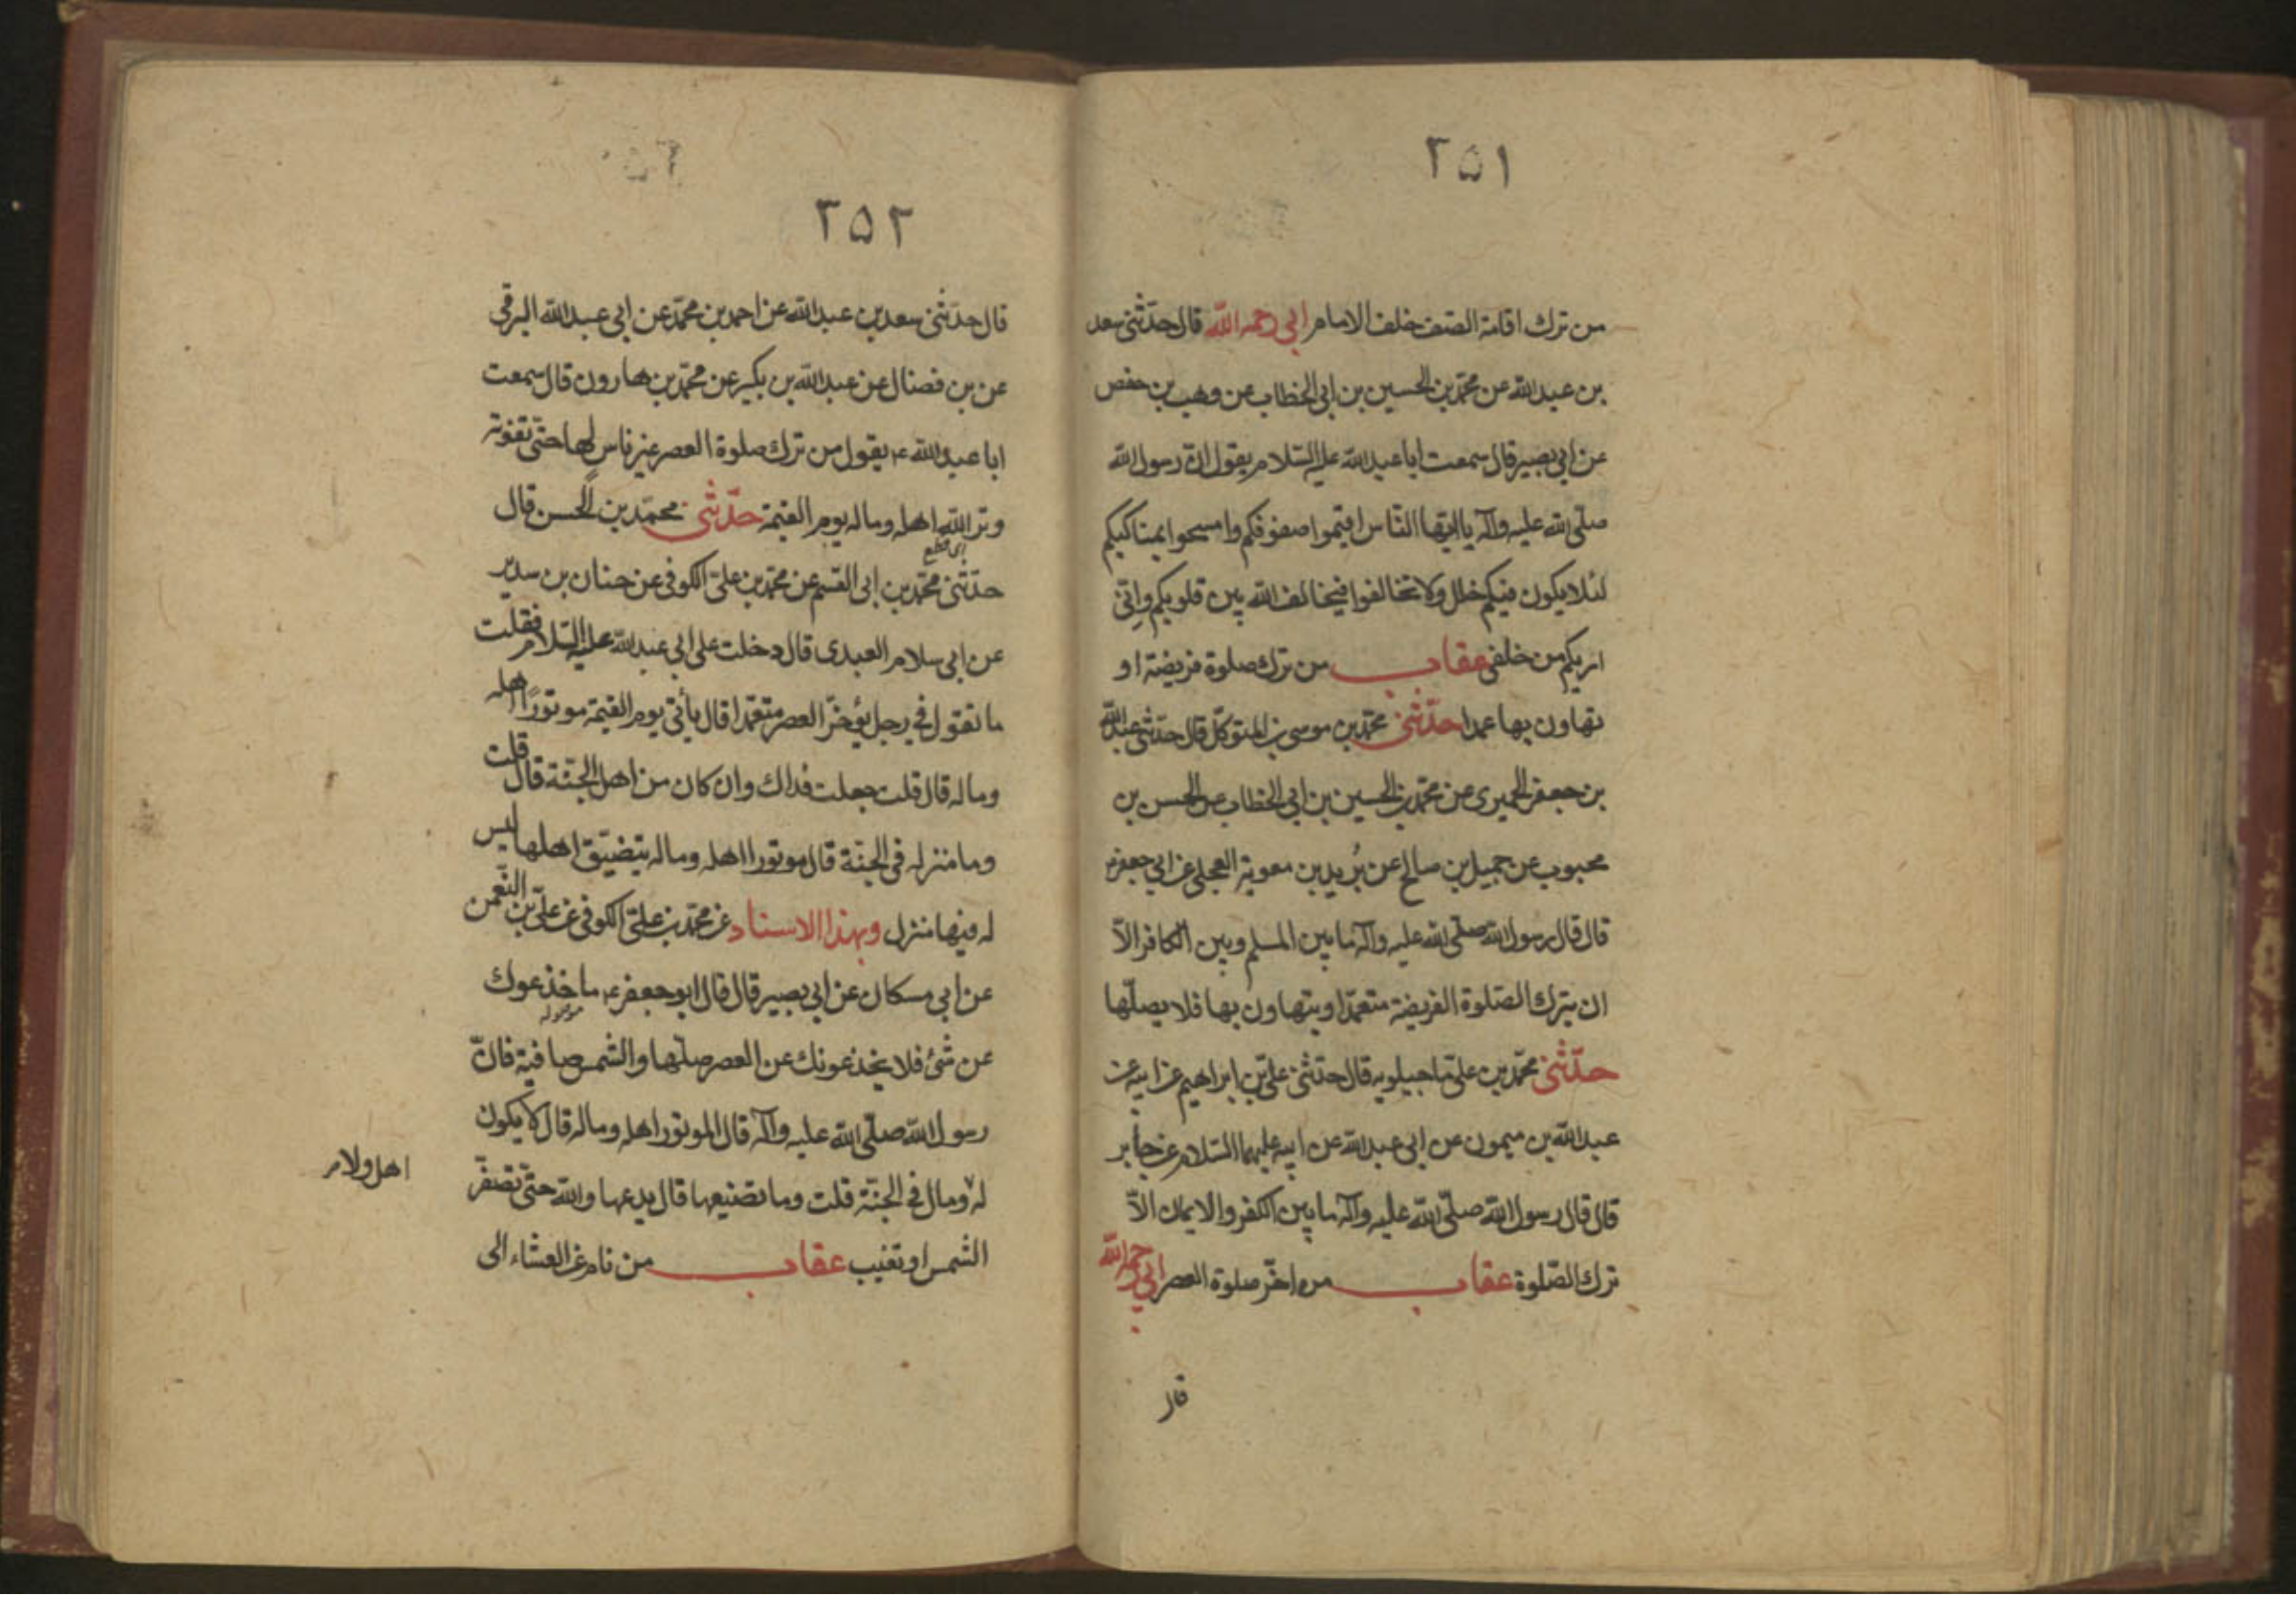 ٢٥١
من ترك اقامة الصف خلف الامام ابي رحمه الله قال حدثني سعد
بن عبد الله عن محمد بن الحسين بن ابي الخطاب عن وهيب بن حفص
عن ابي بصير قال سمعت ابا عبد الله عليه السلام يقول ان رسول الله
صلى الله عليه وآله يا ايها الناس اقيموا صفوفكم وامسحوا بمناكبكم
لئلا يكون فيكم خلل ولا تخالفوا فيخالف الله بين قلوبكم واني
اريكم من خلفي عقاب من ترك صلوة فريضة او
تهاون بها عمدا حدثني محمد بن موسى بن المتوكل قال حدثني عبد الله
بن جعفر الحميري عن محمد بن الحسين بن ابي الخطاب عن الحسن بن
محبوب عن جميل بن صالح عن بُريد بن معوية العجلي عن ابي جعفر ع
قال قال رسول الله صلى الله عليه وآله ما بين المسلم وبين الكافر الاّ
ان يترك الصلوة الفريضة متعمدا او يتهاون بها فلا يصلّها
حدّثني محمد بن علي ماجيلويه قال حدثني علي بن ابراهيم عن ابيه عن
عبد الله بن ميمون عن ابي عبد الله عن ابيه عليهما السلام عن جابر
قال قال رسول الله صلى الله عليه وآله ما بين الكفر والايمان الاّ
ترك الصّلوة عقاب من اخّر صلوة العصر ابي رحمه الله
قال
٢٥٢
قال حدثني سعد بن عبد الله عن احمد بن محمد عن ابي عبد الله البرقي
عن بن فضال عن عبد الله بن بكير عن محمد بن هارون قال سمعت
ابا عبد الله ع يقول من ترك صلوة العصر غير ناس لها حتى تفوته
وتر الله اهله وماله يوم القيمة حدّثني محمد بن الحسن قال
اي قطع
حدثني محمد بن ابي القسم عن محمد بن علي الكوفي عن حنان بن سدير
عن ابي سلام العبدي قال دخلت على ابي عبد الله عليه السلام فقلت
ما تقول في رجل يؤخر العصر متعمدا قال يأتي يوم القيمة موتورًا اهله
وماله قال قلت جعلت فداك وان كان من اهل الجنة قال قلت
وما منزله في الجنة قال موتورا اهله وماله يتضيق اهلها ليس
له فيها منزل وبهذا الاسناد عن محمد بن علي الكوفي عن علي بن النعمن
عن ابي مسكان عن ابي بصير قال قال ابو جعفر ع ما خذعوك
عن شئ فلا يخذعونك عن العصر صلّها والشمس صافية فانّ
رسول الله صلى الله عليه وآله قال الموتور اهله وماله قال لا يكون
له ومال في الجنة قلت وما تضنيعها قال يدعها والله حتى تصفرّ
اهل ولا م
الشمس او تغيب عقاب من نام عن العشاء الى